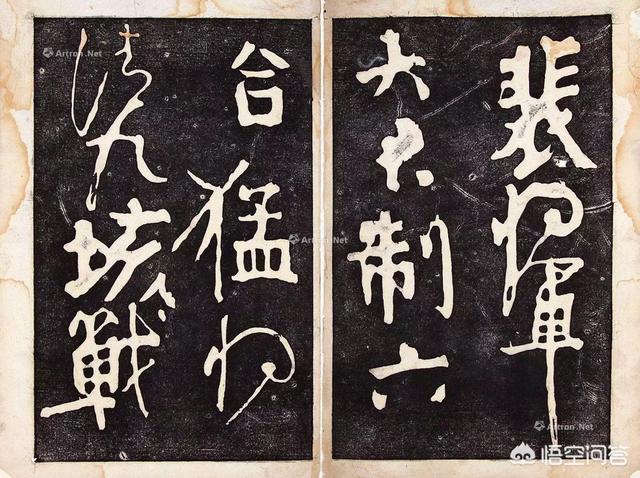 裴將軍
大君制六
合猛將
清九垓戰
Artron.Net
Artron.Net
Artron.Net
Artron.Net
Artron.Net
悟空问答